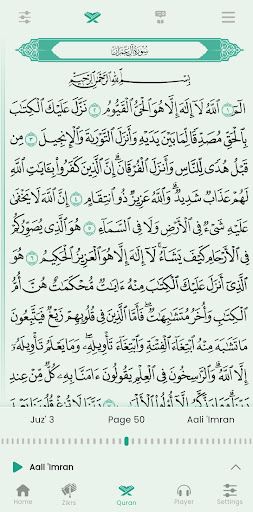 سُورَةُ آلِ عِمْرَانَ
بِسْمِ اللَّهِ الرَّحْمَٰنِ الرَّحِيمِ
الٓمٓ ١ ٱللَّهُ لَآ إِلَٰهَ إِلَّا هُوَ ٱلْحَىُّ ٱلْقَيُّومُ ٢ نَزَّلَ عَلَيْكَ ٱلْكِتَٰبَ
بِٱلْحَقِّ مُصَدِّقًا لِّمَا بَيْنَ يَدَيْهِ وَأَنزَلَ ٱلتَّوْرَىٰةَ وَٱلْإِنجِيلَ ٣
مِن قَبْلُ هُدًى لِّلنَّاسِ وَأَنزَلَ ٱلْفُرْقَانَ ۗ إِنَّ ٱلَّذِينَ كَفَرُوا۟ بِـَٔايَٰتِ ٱللَّهِ
لَهُمْ عَذَابٌ شَدِيدٌ ۗ وَٱللَّهُ عَزِيزٌ ذُو ٱنتِقَامٍ ٤ إِنَّ ٱللَّهَ لَا يَخْفَىٰ
عَلَيْهِ شَىْءٌ فِى ٱلْأَرْضِ وَلَا فِى ٱلسَّمَآءِ ٥ هُوَ ٱلَّذِى يُصَوِّرُكُمْ
فِى ٱلْأَرْحَامِ كَيْفَ يَشَآءُ ۚ لَآ إِلَٰهَ إِلَّا هُوَ ٱلْعَزِيزُ ٱلْحَكِيمُ ٦
هُوَ ٱلَّذِىٓ أَنزَلَ عَلَيْكَ ٱلْكِتَٰبَ مِنْهُ ءَايَٰتٌ مُّحْكَمَٰتٌ هُنَّ أُمُّ
ٱلْكِتَٰبِ وَأُخَرُ مُتَشَٰبِهَٰتٌ ۖ فَأَمَّا ٱلَّذِينَ فِى قُلُوبِهِمْ زَيْغٌ فَيَتَّبِعُونَ
مَا تَشَٰبَهَ مِنْهُ ٱبْتِغَآءَ ٱلْفِتْنَةِ وَٱبْتِغَآءَ تَأْوِيلِهِۦ ۗ وَمَا يَعْلَمُ تَأْوِيلَهُۥٓ
إِلَّا ٱللَّهُ ۗ وَٱلرَّٰسِخُونَ فِى ٱلْعِلْمِ يَقُولُونَ ءَامَنَّا بِهِۦ كُلٌّ مِّنْ عِندِ
Juz' 3 Page 50 Aali 'Imran
Aali 'Imran
Home Zikrs Quran Player Settings